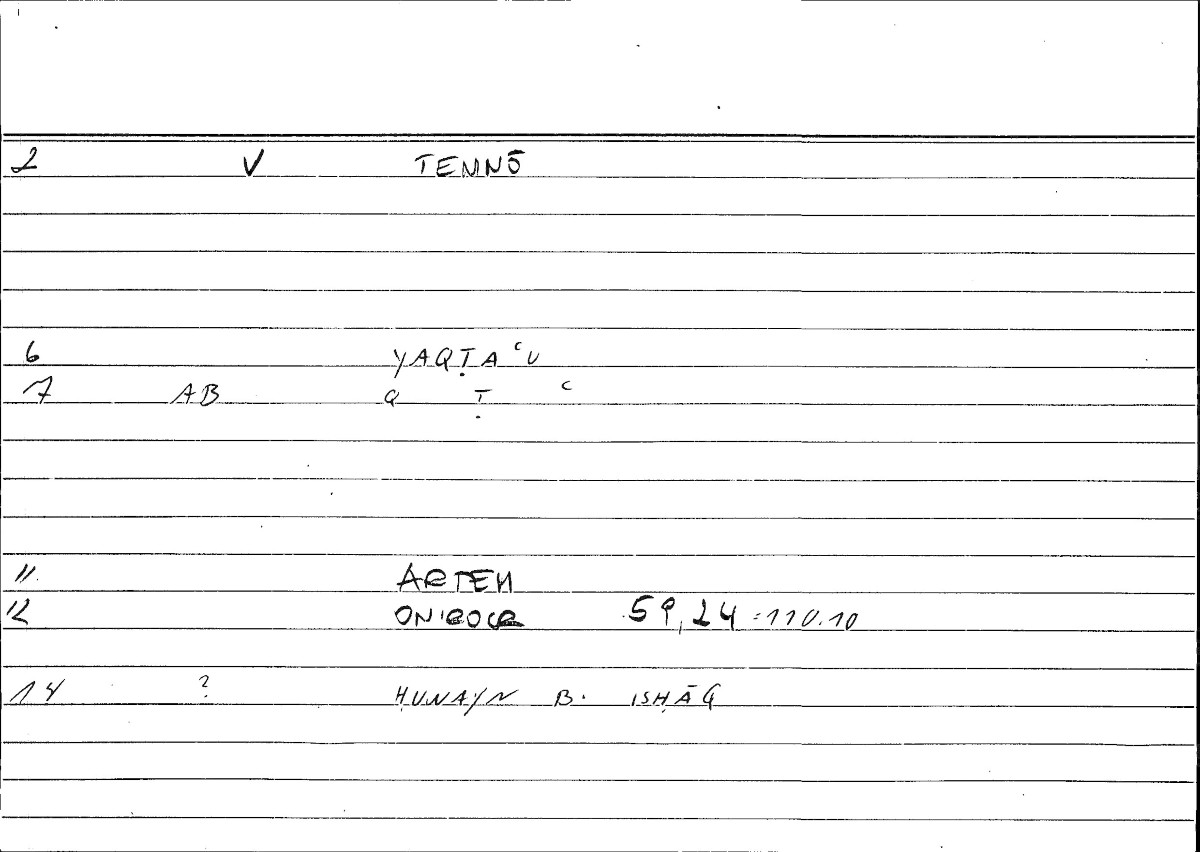 2 V TEMNŌ
6 YAQṬAʿU
7 AB Q Ṭ ʿ
11 ARTEM
12 ONIROCR 59,24 = 110.10
14 ? ḤUNAYN B. ISḤĀQ